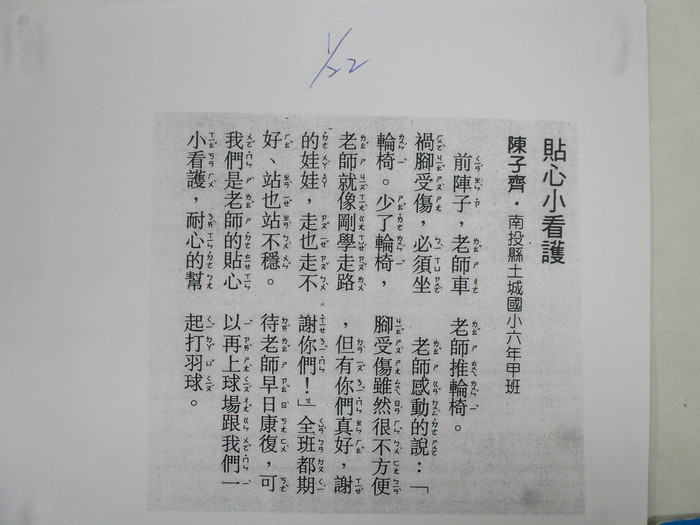 1/22
貼心小看護
陳子齊・南投縣土城國小六年甲班
前陣子，老師車
禍腳受傷，必須坐
輪椅。少了輪椅，
老師就像剛學走路
的娃娃，走也走不
好、站也站不穩。
我們是老師的貼心
小看護，耐心的幫
老師推輪椅。
老師感動的說：「
腳受傷雖然很不方便
，但有你們真好，謝
謝你們！」全班都期
待老師早日康復，可
以再上球場跟我們一
起打羽球。